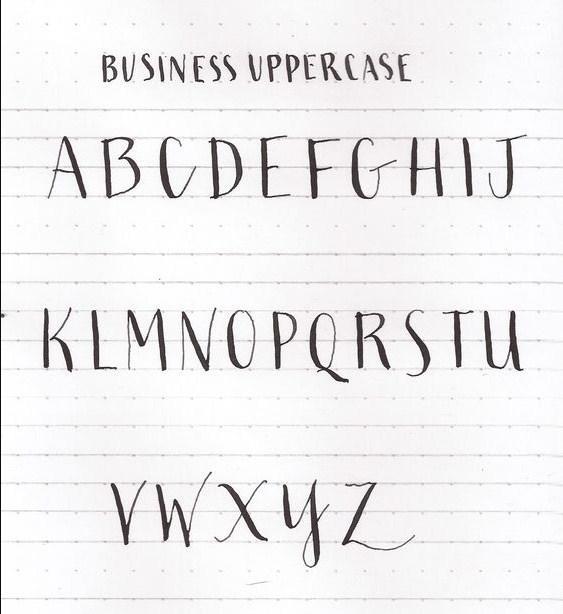 BUSINESS UPPERCASE
ABCDEFGHIJ
KLMNOPQRSTU
VWXYZ